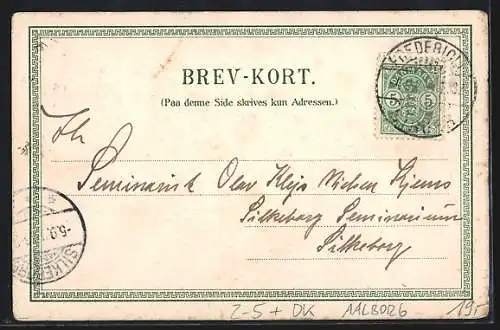 BREV-KORT.
(Paa denne Side skrives kun Adressen.)
FREDERICIA
5 5
Hr
Seminarist Olav Klejs Nielsen Hjems
Silkeborg Seminarium
Silkeborg
SILKEBORG
2-5 + DK AALBORG 195